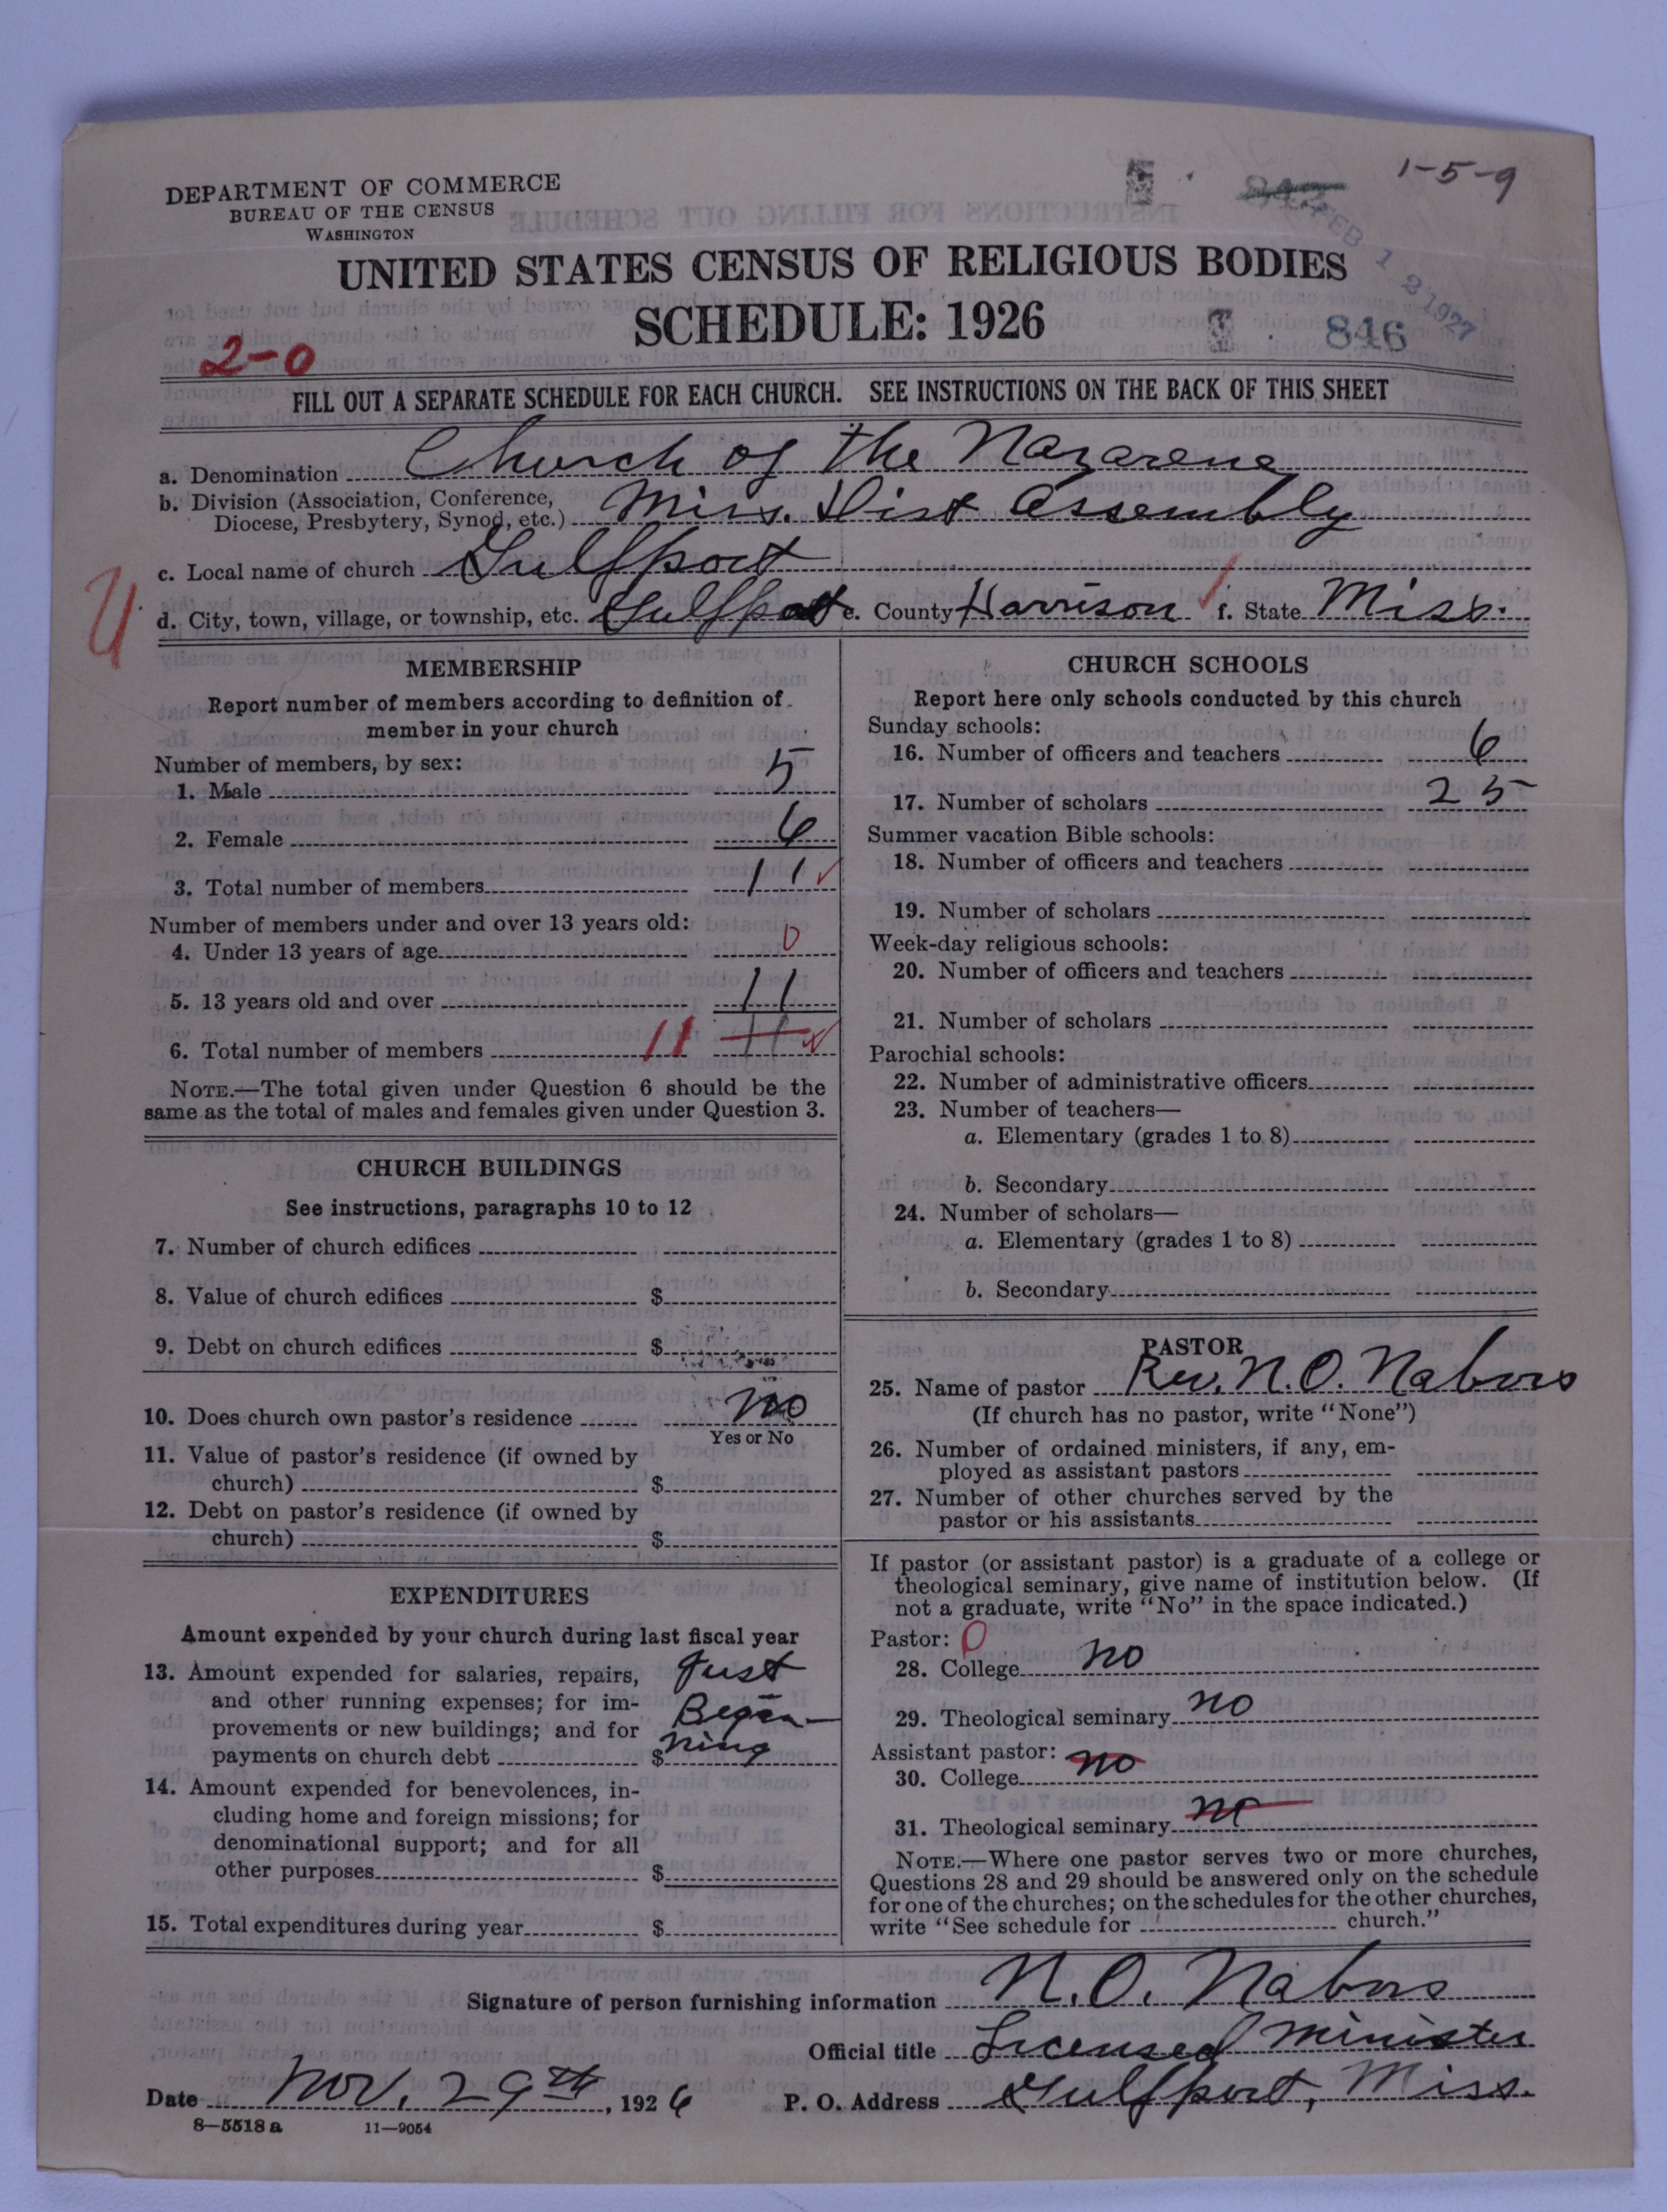 1-5-9
DEPARTMENT OF COMMERCE
BUREAU OF THE CENSUS
WASHINGTON
FEB 12 1927
UNITED STATES CENSUS OF RELIGIOUS BODIES
SCHEDULE: 1926
846
2-0
FILL OUT A SEPARATE SCHEDULE FOR EACH CHURCH. SEE INSTRUCTIONS ON THE BACK OF THIS SHEET
a. Denomination Church of the Nazarene
b. Division (Association, Conference,
Diocese, Presbytery, Synod, etc.) Miss. Dist Assembly
c. Local name of church Gulfport
U
d. City, town, village, or township, etc. Gulfport e. County Harrison f. State Miss.
MEMBERSHIP
Report number of members according to definition of
member in your church
Number of members, by sex:
1. Male 5
2. Female 6
3. Total number of members 11
Number of members under and over 13 years old:
4. Under 13 years of age 0
5. 13 years old and over 11
6. Total number of members 11 11
NOTE.—The total given under Question 6 should be the
same as the total of males and females given under Question 3.
CHURCH BUILDINGS
See instructions, paragraphs 10 to 12
7. Number of church edifices
8. Value of church edifices $
9. Debt on church edifices $
10. Does church own pastor's residence no
Yes or No
11. Value of pastor's residence (if owned by
church) $
12. Debt on pastor's residence (if owned by
church) $
EXPENDITURES
Amount expended by your church during last fiscal year
13. Amount expended for salaries, repairs, Just
and other running expenses; for im- Begin-
provements or new buildings; and for
payments on church debt $ ning
14. Amount expended for benevolences, in-
cluding home and foreign missions; for
denominational support; and for all
other purposes $
15. Total expenditures during year $
CHURCH SCHOOLS
Report here only schools conducted by this church
Sunday schools:
16. Number of officers and teachers 6
17. Number of scholars 25
Summer vacation Bible schools:
18. Number of officers and teachers
19. Number of scholars
Week-day religious schools:
20. Number of officers and teachers
21. Number of scholars
Parochial schools:
22. Number of administrative officers
23. Number of teachers—
a. Elementary (grades 1 to 8)
b. Secondary
24. Number of scholars—
a. Elementary (grades 1 to 8)
b. Secondary
PASTOR
25. Name of pastor Rev. N. O. Nabors
(If church has no pastor, write "None")
26. Number of ordained ministers, if any, em-
ployed as assistant pastors
27. Number of other churches served by the
pastor or his assistants
If pastor (or assistant pastor) is a graduate of a college or
theological seminary, give name of institution below. (If
not a graduate, write "No" in the space indicated.)
Pastor: 0
28. College no
29. Theological seminary no
Assistant pastor:
30. College no
31. Theological seminary no
NOTE.—Where one pastor serves two or more churches,
Questions 28 and 29 should be answered only on the schedule
for one of the churches; on the schedules for the other churches,
write "See schedule for church."
Signature of person furnishing information N. O. Nabors
Official title Licensed minister
Date Nov. 29th, 1926 P. O. Address Gulfport, Miss.
8—5518 a 11—9054